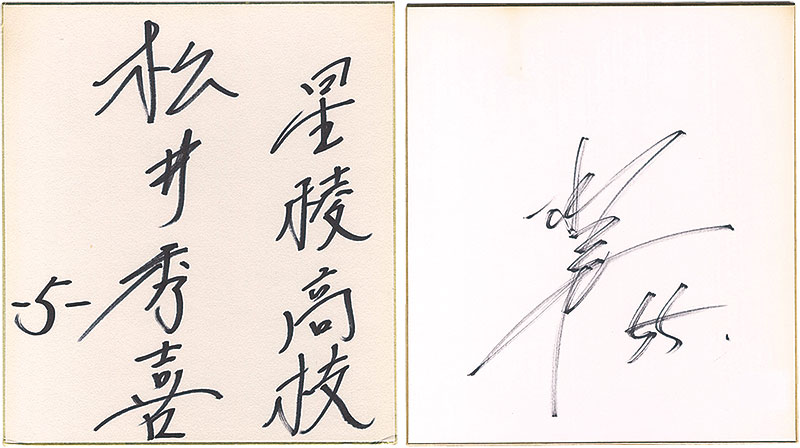 星稜高校
松井秀喜
-5-
55.